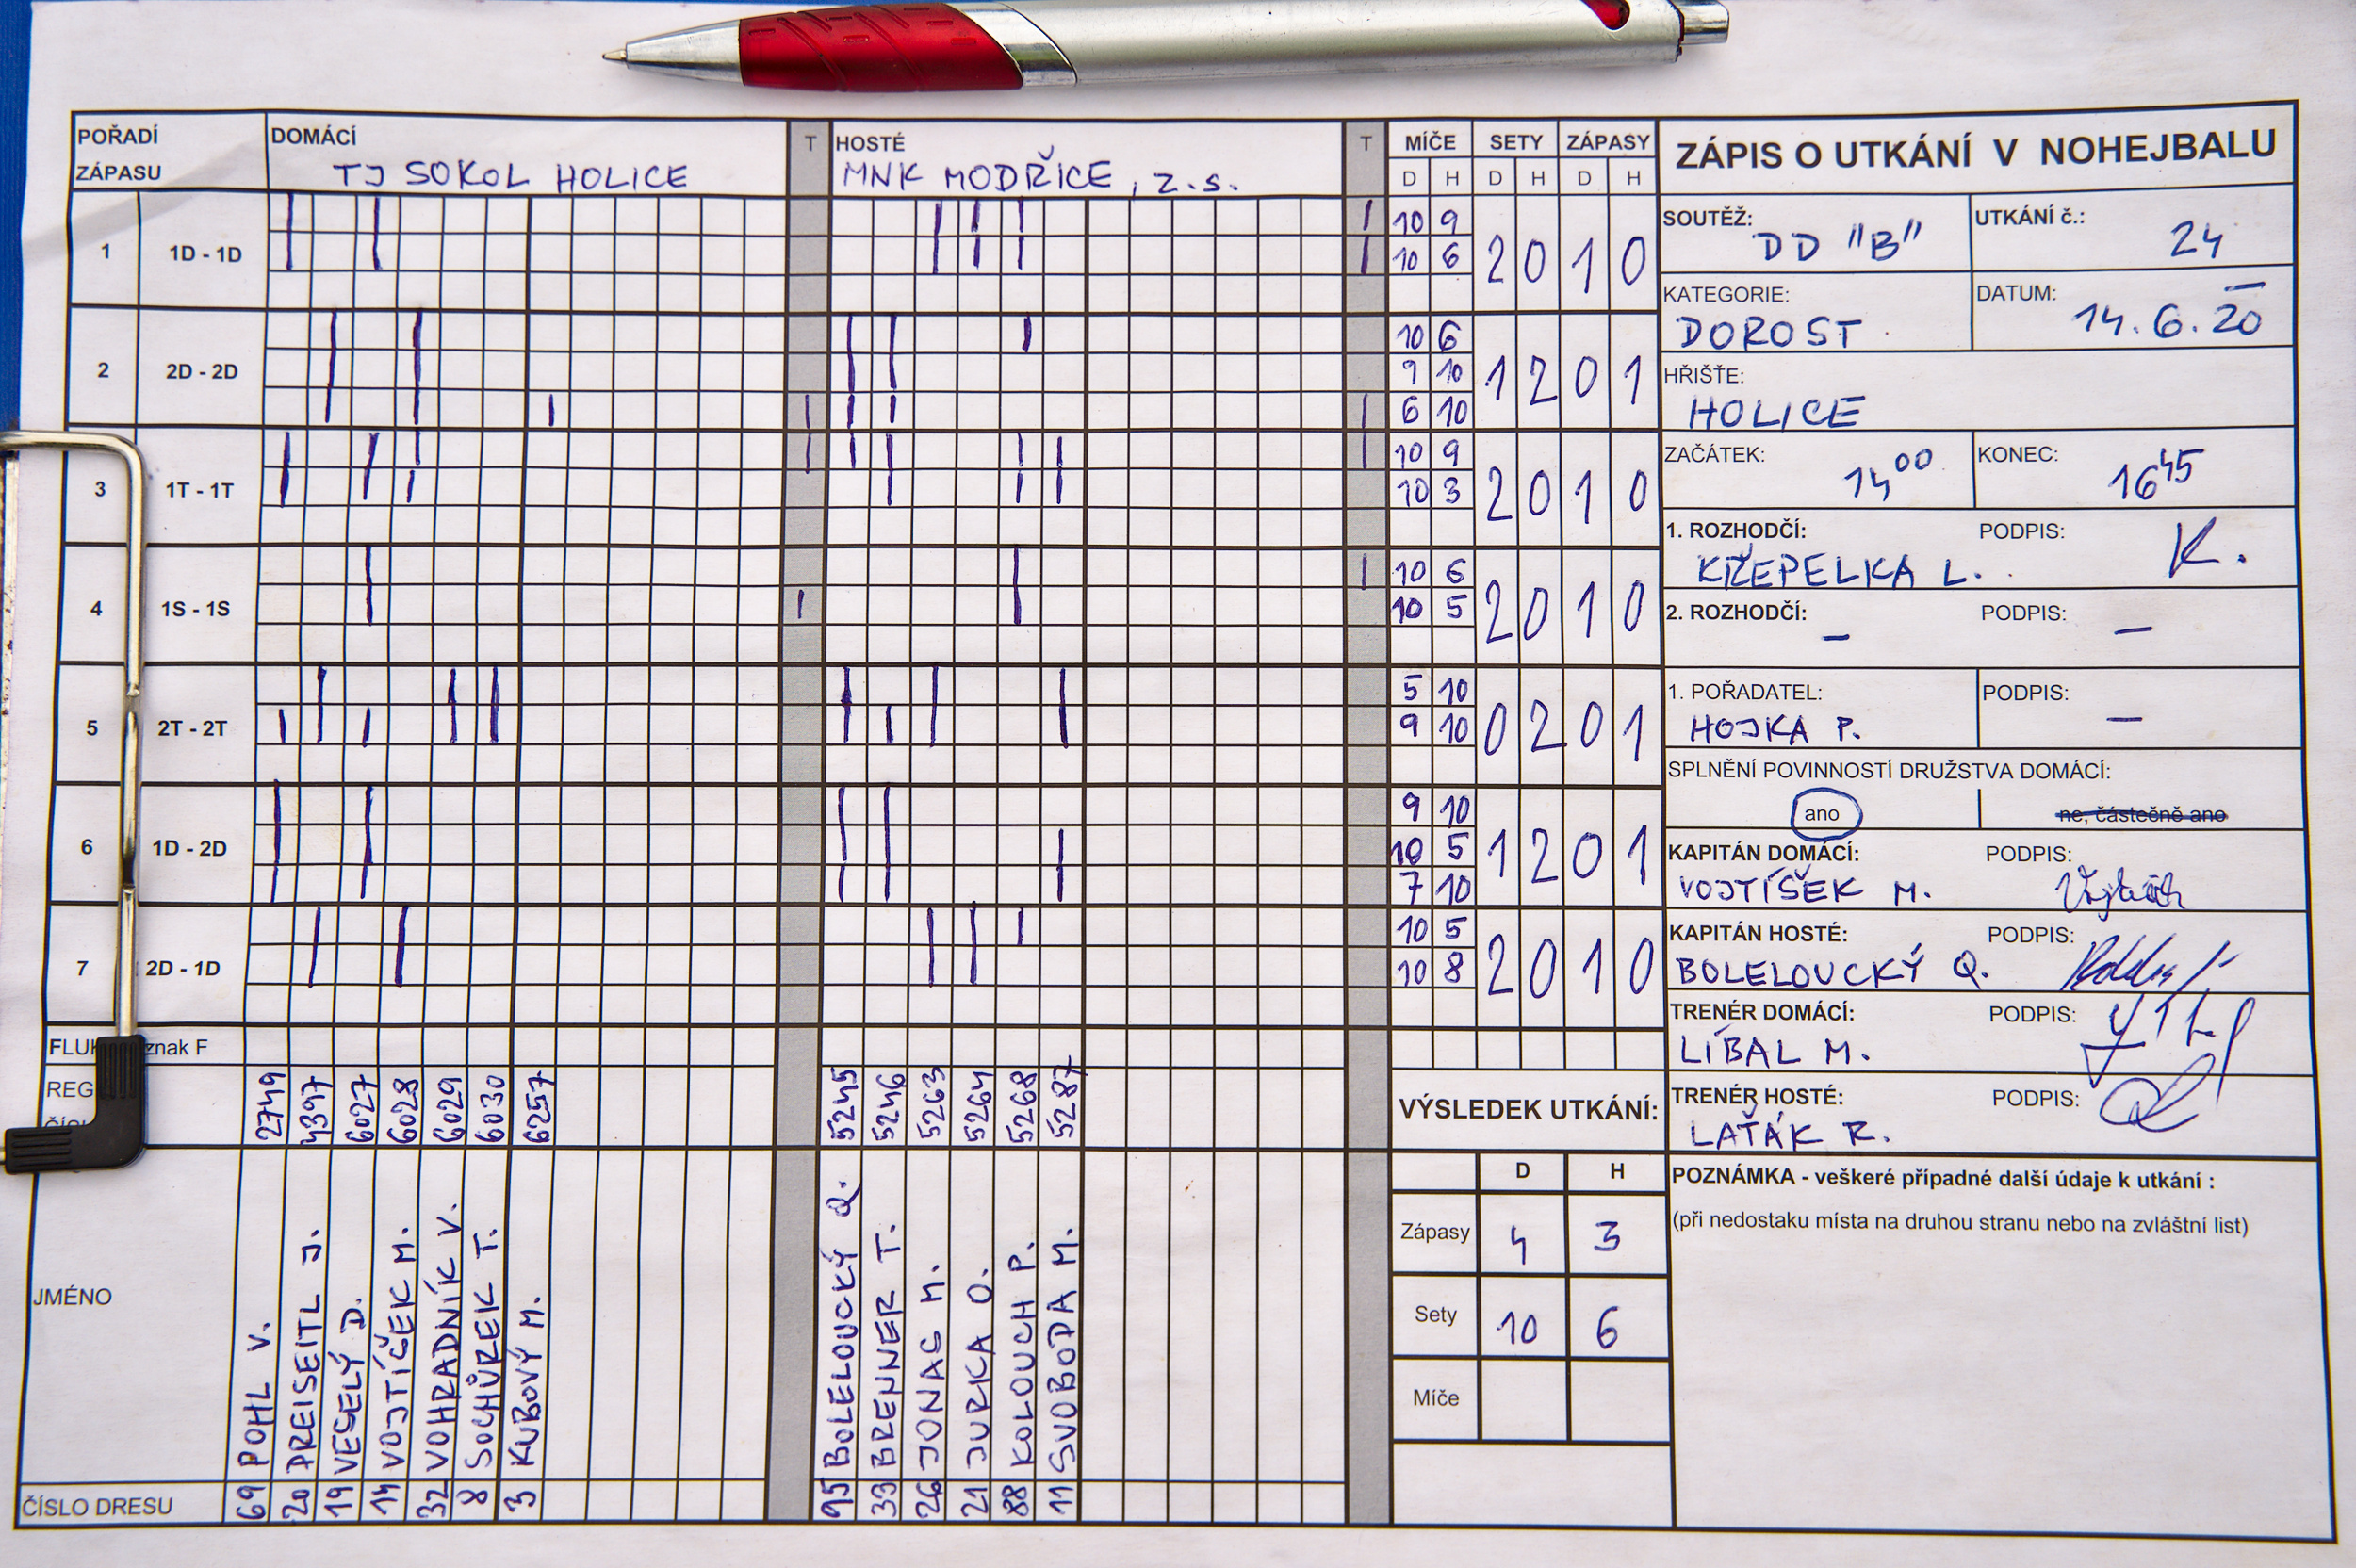 POŘADÍ ZÁPASU
DOMÁCÍ
TJ SOKOL HOLICE
T
HOSTÉ
MNK MODŘICE, z.s.
T
MÍČE SETY ZÁPASY
D H D H D H
1 1D - 1D
10 9
10 6
2 0 1 0
2 2D - 2D
10 6
9 10
6 10
1 2 0 1
3 1T - 1T
10 9
10 3
2 0 1 0
4 1S - 1S
10 6
10 5
2 0 1 0
5 2T - 2T
5 10
9 10
0 2 0 1
6 1D - 2D
9 10
10 5
7 10
1 2 0 1
7 2D - 1D
10 5
10 8
2 0 1 0
znak F
REG
2749 4397 6027 6028 6029 6030 6257
5245 5246 5263 5264 5268 5287
JMÉNO
POHL V.
PREISEITL J.
VESELÝ D.
VOJTÍČEK M.
VOHRADNÍK V.
SOCHŮREK T.
KUBOVÝ M.
BOLELOUCKÝ Q.
BRENNER T.
JONAC M.
JURKA O.
KOLOUCH P.
SVOBODA M.
ČÍSLO DRESU
69 20 19 14 32 8 3
95 33 26 21 88 11
VÝSLEDEK UTKÁNÍ:
D H
Zápasy 4 3
Sety 10 6
Míče
ZÁPIS O UTKÁNÍ V NOHEJBALU
SOUTĚŽ: DD "B"
UTKÁNÍ č.: 24
KATEGORIE: DOROST
DATUM: 14.6.20
HŘIŠTĚ: HOLICE
ZAČÁTEK: 14 00
KONEC: 16 45
1. ROZHODČÍ: KŘEPELKA L.
PODPIS: K.
2. ROZHODČÍ: –
PODPIS: –
1. POŘADATEL: HOJKA P.
PODPIS: –
SPLNĚNÍ POVINNOSTÍ DRUŽSTVA DOMÁCÍ:
ano
ne, částečně ano
KAPITÁN DOMÁCÍ: VOJTÍŠEK M.
PODPIS:
KAPITÁN HOSTÉ: BOLELOUCKÝ Q.
PODPIS:
TRENÉR DOMÁCÍ: LÍBAL M.
PODPIS:
TRENÉR HOSTÉ: LAŤÁK R.
PODPIS:
POZNÁMKA - veškeré případné další údaje k utkání :
(při nedostaku místa na druhou stranu nebo na zvláštní list)